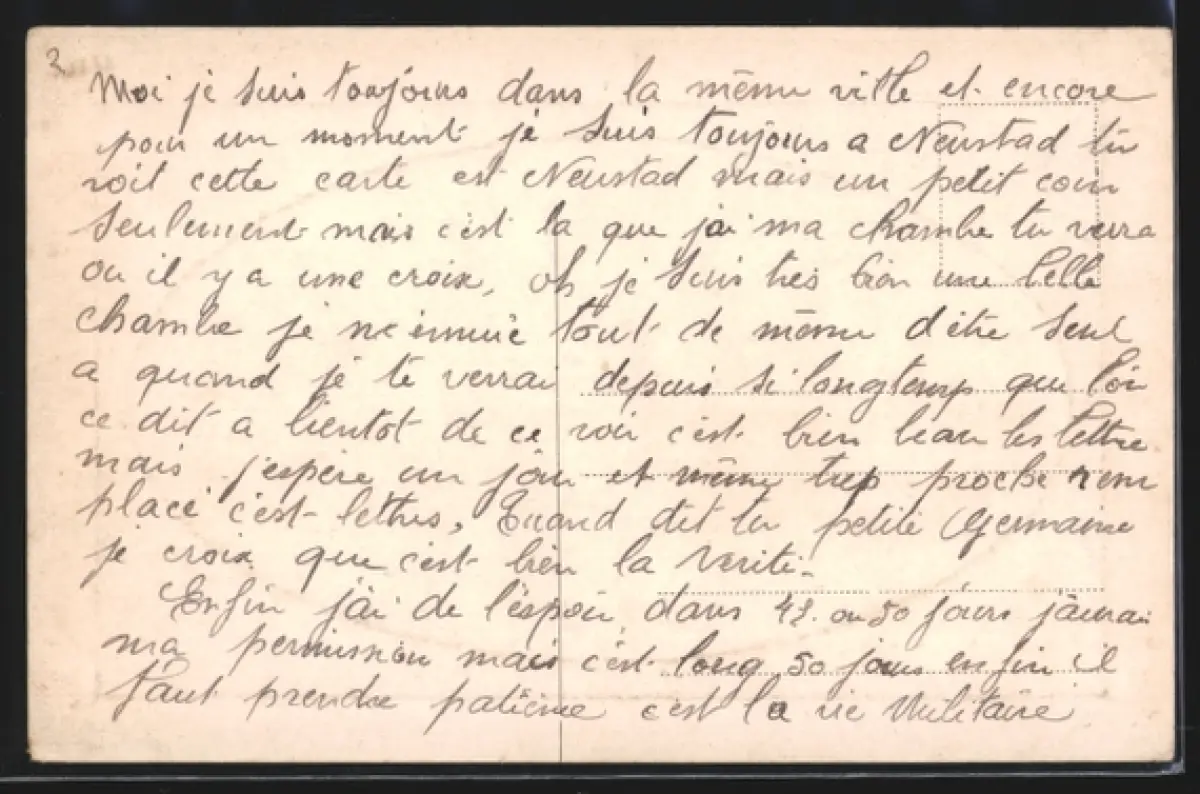 3
Moi je suis toujours dans la même ville et encore
pour un moment je suis toujours a Neustad tu
voit cette carte est Neustad mais un petit coin
seulement mais c'est la que j'ai ma chambre tu verra
ou il y a une croix, oh je suis tres bien une belle
chambre je m'ennuie tout de même d'être seul
a quand je te verrai depuis si longtemps que l'on
ce dit a bientot de ce voir c'est bien beau les lettre
mais j'espère un jour et même trep proche rem
placé c'est lettres, Quand dit tu petite Germaine
je crois que c'est bien la verité.
Enfin j'ai de l'espoir dans 48. ou 50 jours j'aurai
ma permission mais c'est long 50 jours enfin il
faut prendre patience c'est la vie Militaire